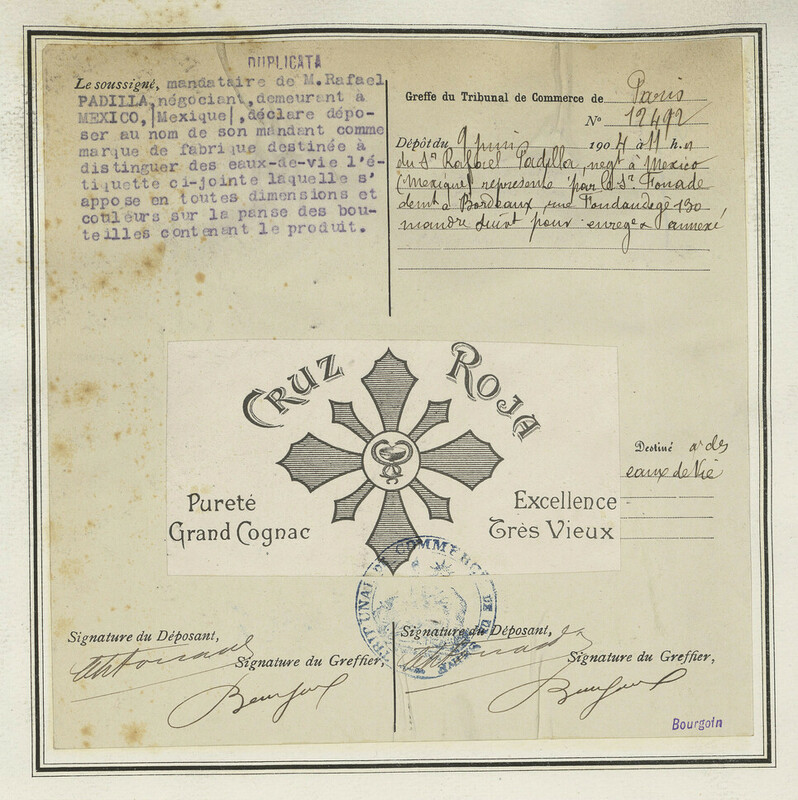 DUPLICATA
Le soussigné, mandataire de M. Rafael
PADILLA, négociant, demeurant à
MEXICO, |Mexique|, déclare dépo-
ser au nom de son mandant comme
marque de fabrique destinée à
distinguer des eaux-de-vie l'é-
tiquette ci-jointe laquelle s'
appose en toutes dimensions et
couleurs sur la panse des bou-
teilles contenant le produit.
Greffe du Tribunal de Commerce de Paris
N° 12492
Dépôt du 9 juin 1904 à 11 h.
du Sr Rafael Padilla, negt à Mexico
(Mexique) représenté par le Sr Fonade
demt à Bordeaux, rue Fondaudège 130
mandre suivt pour enregé annexé
CRUZ ROJA
Pureté
Grand Cognac
Excellence
Très Vieux
Destiné à des
eaux de Vie
TRIBUNAL DE COMMERCE DE LA SEINE
Signature du Déposant,
Signature du Greffier,
Signature du Déposant,
Signature du Greffier,
Bourgoin